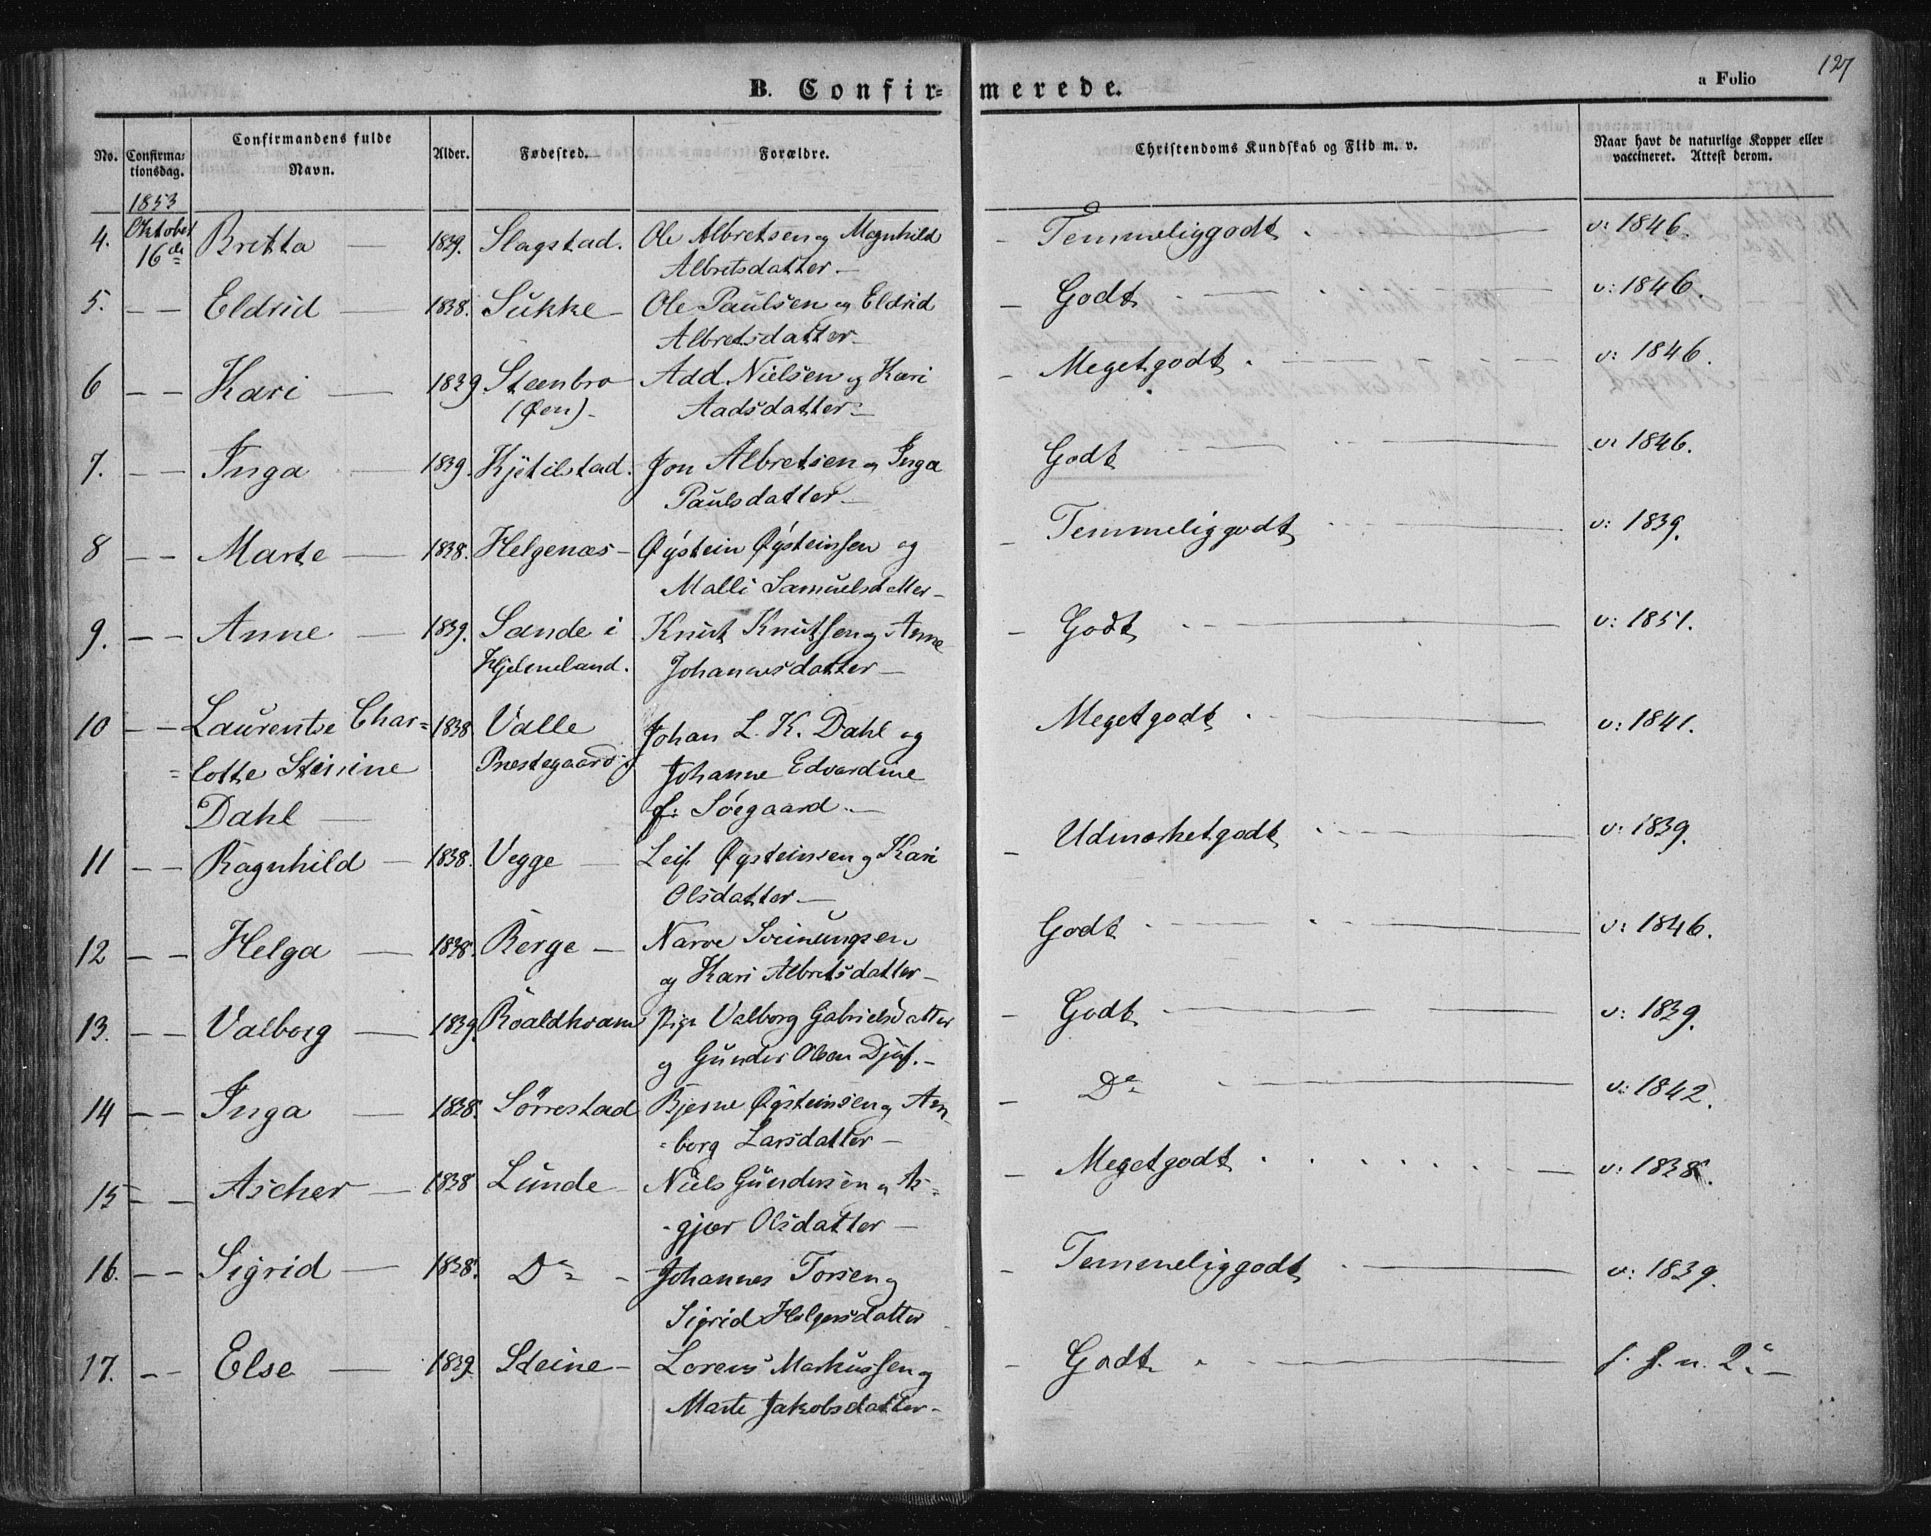 127
B. Confir=merede.
a Folio
No. Confirma=tionsdag. Confirmandens fulde Navn. Alder. Fødested. Forældre. Christendoms Kundskab og Flid m. v. Naar havt de naturlige Kopper eller vaccineret. Attest derom.
1853
4. Oktober 16de Britta — 1839. Slagstad. Ole Albretsen og Magnhild - Temmeliggodt v: 1846.
Albretsdatter —
5. — — Eldrid — 1838. Sukke — Ole Paulsen og Eldrid - Godt v: 1846.
Albretsdatter —
6 — — Kari — 1839 Steenbro Add. Nielsen og Kari - Megetgodt v: 1846.
(Øen) - Aadsdatter —
7. — — Inga 1839. Kjetilstad. Jon Albretsen og Inga Godt v: 1846.
Paulsdatter —
8 — — Marte — 1838. Helgenæs — Øystein Øysteinsen og - Temmeliggodt v: 1839.
Malli Samuelsdatter —
9. — — Anne — 1839. Sande i Knut Knutsen og Anne - Godt v: 1851.
Hjelmeland. Johannesdatter —
10 — — Laurentse Char= 1838 Valle Johan L. K. Dahl og Megetgodt v: 1841.
=lotte Stinine Præstegaard Johanne Edvardine
Dahl — f: Sörgaard. —
11 — — Ragnhild — 1838. Vegge — Leif Øysteinsen og Kari - Udmærketgodt v: 1839.
Olsdatter —
12 — — Helga — 1838. Berge — Narve Sveinungsen Godt v: 1846.
og Kari Albretsdatter —
13. — — Valborg — 1839. Roaldkvam Pige Valborg Gabrielsdatter - Godt v: 1839.
og Gunder Olsen
14 — — Inga — 1838. Sörrestad Bjerne Øysteinsen og An - De v: 1842.
=borg Larsdatter —
15 — — Ascher — 1838 Lunde Niels Gundersen og As= - Megetgodt v: 1838.
-gjær Olsdatter —
16. — — Sigrid — 1838. De - Johannes Torsen og - Temmeliggodt v: 1839.
Sigrid Helgersdatter
17. — — Else — 1839. Steine — Lorens Markussen og - Godt f. f. n. 2.
Marte Jakobsdatter —